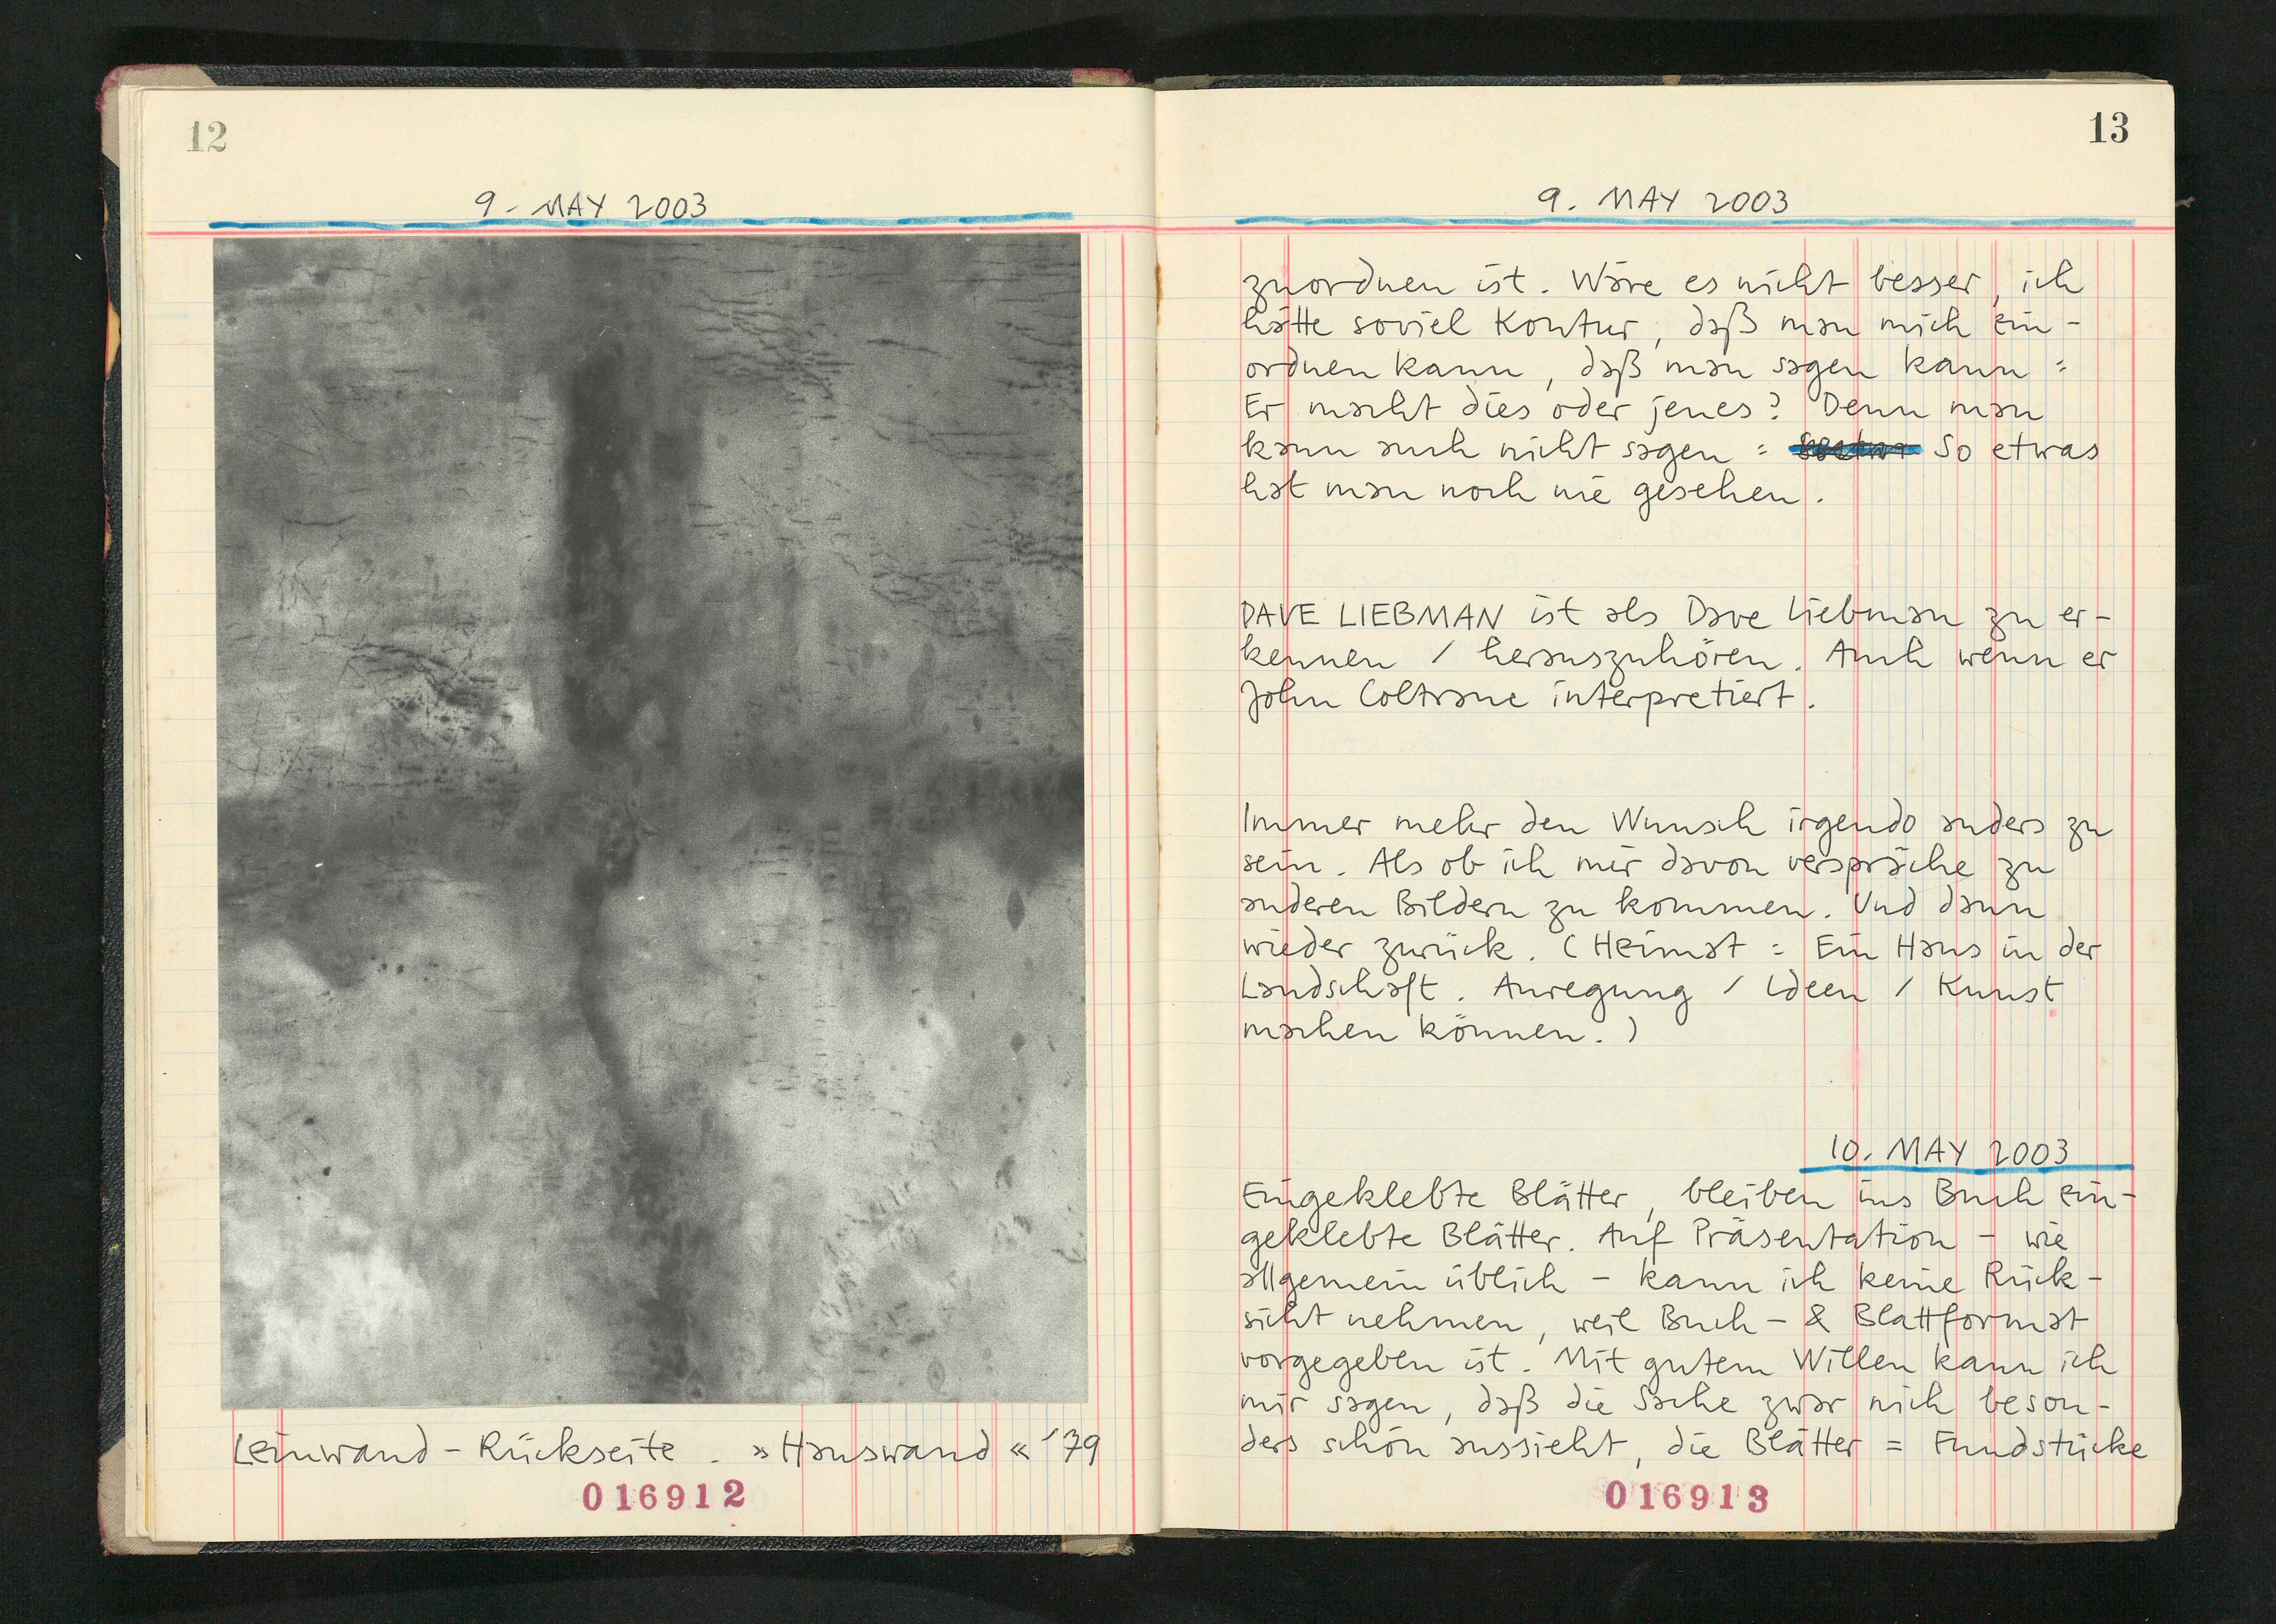 12
9. MAY 2003
Leinwand-Rückseite. »Hauswand« '79
016912
13
9. MAY 2003
zuordnen ist. Wäre es nicht besser, ich
hätte soviel Kontur, daß man mich ein-
ordnen kann, daß man sagen kann:
Er macht dies oder jenes? Denn man
kann auch nicht sagen: So etwas
hat man noch nie gesehen.
DAVE LIEBMAN ist als Dave Liebman zu er-
kennen / herauszuhören. Auch wenn er
John Coltrane interpretiert.
Immer mehr den Wunsch irgendo anders zu
sein. Als ob ich mir davon verspräche zu
anderen Bildern zu kommen. Und dann
wieder zurück. (Heimat = Ein Haus in der
Landschaft. Anregung / Ideen / Kunst
machen können.)
10. MAY 2003
Eingeklebte Blätter, bleiben ins Buch ein-
geklebte Blätter. Auf Präsentation - wie
allgemein üblich - kann ich keine Rück-
sicht nehmen, weil Buch- & Blattformat
vorgegeben ist. Mit gutem Willen kann ich
mir sagen, daß die Sache zwar nich beson-
ders schön aussieht, die Blätter = Fundstücke
016913